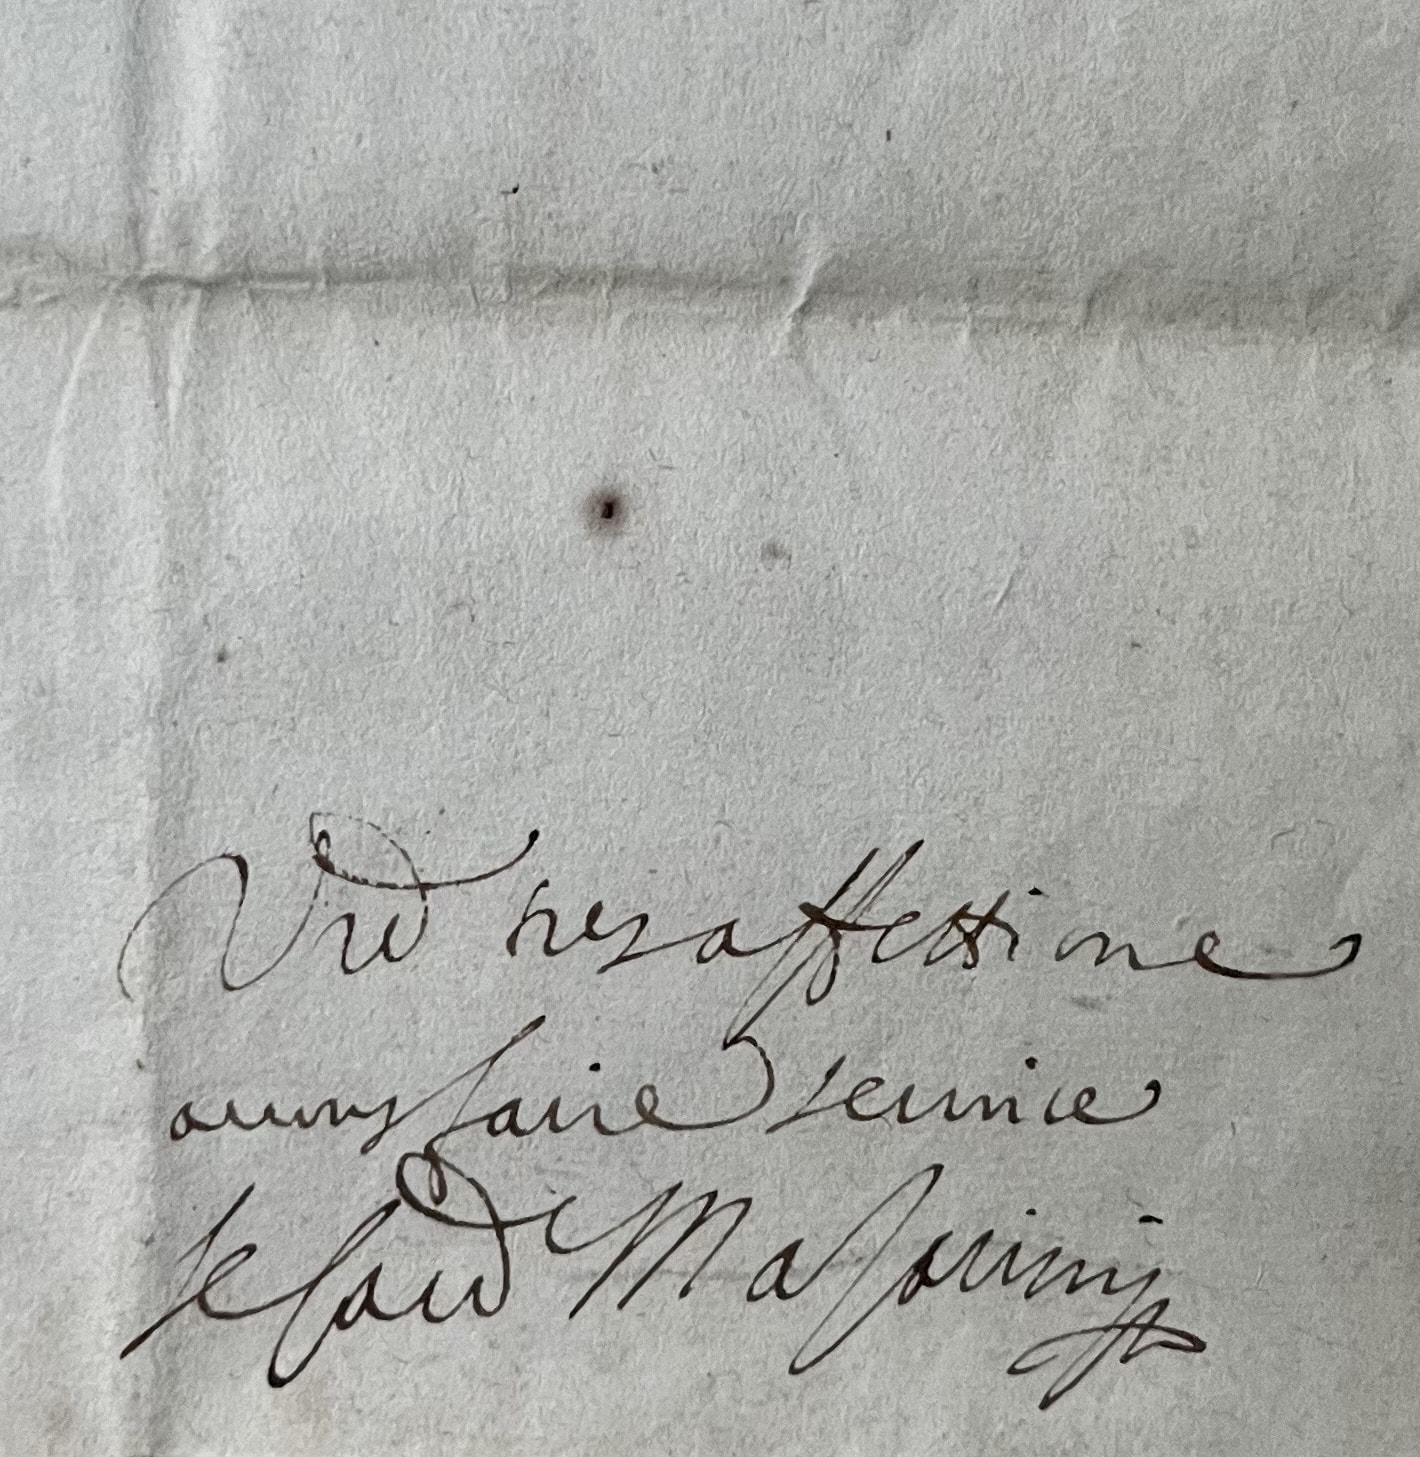 Vre tres affectione
a vous faire seruice
le Card Mazarini